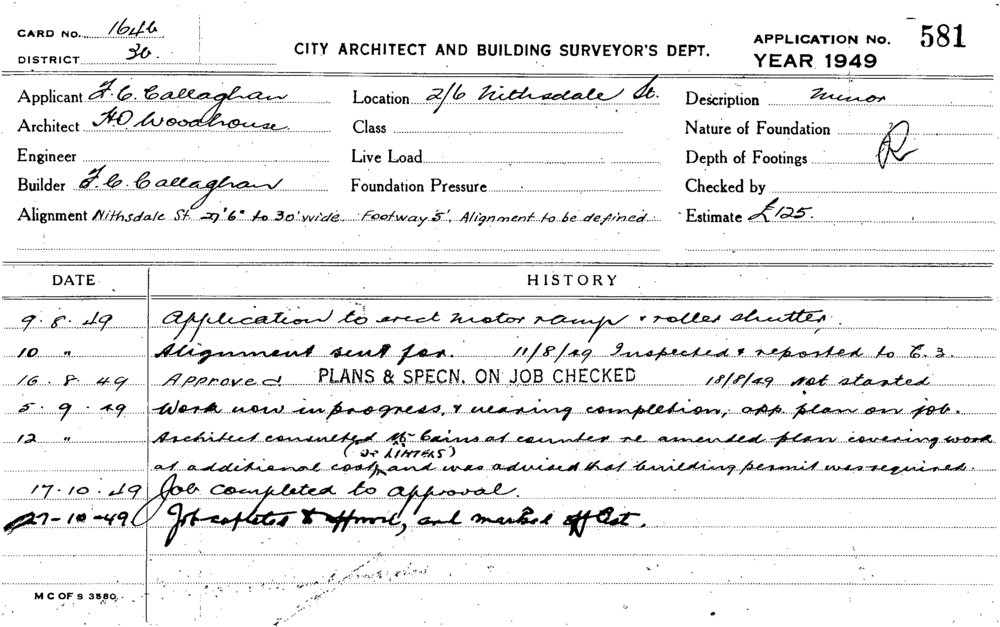 CARD NO. 1646
DISTRICT 36.
CITY ARCHITECT AND BUILDING SURVEYOR'S DEPT.
APPLICATION NO. 581
YEAR 1949
Applicant F. C. Callaghan
Location 2/6 Nithsdale St.
Description Minor
Architect H.O. Woodhouse.
Class
Nature of Foundation
Engineer
Live Load
Depth of Footings
Builder F. C. Callaghan
Foundation Pressure
Checked by
Alignment Nithsdale St. 27'6" to 30' wide. Footway 5', Alignment to be defined.
Estimate £125.
DATE HISTORY
9.8.49 Application to erect motor ramp & roller shutter.
10 " Alignment sent for. 11/8/49 Inspected & reported to C. 3.
16.8.49 Approved PLANS & SPECN. ON JOB CHECKED 18/8/49 Not started
5.9.49 Work now in progress, & nearing completion, app. plan on job.
12 " Architect consulted Mr Cains at counter re amended plan covering work
(OF LINTELS)
at additional cost, and was advised that building permit was required.
17.10.49 Job completed to approval.
27-10-49 and marked off
M C OF S 3580